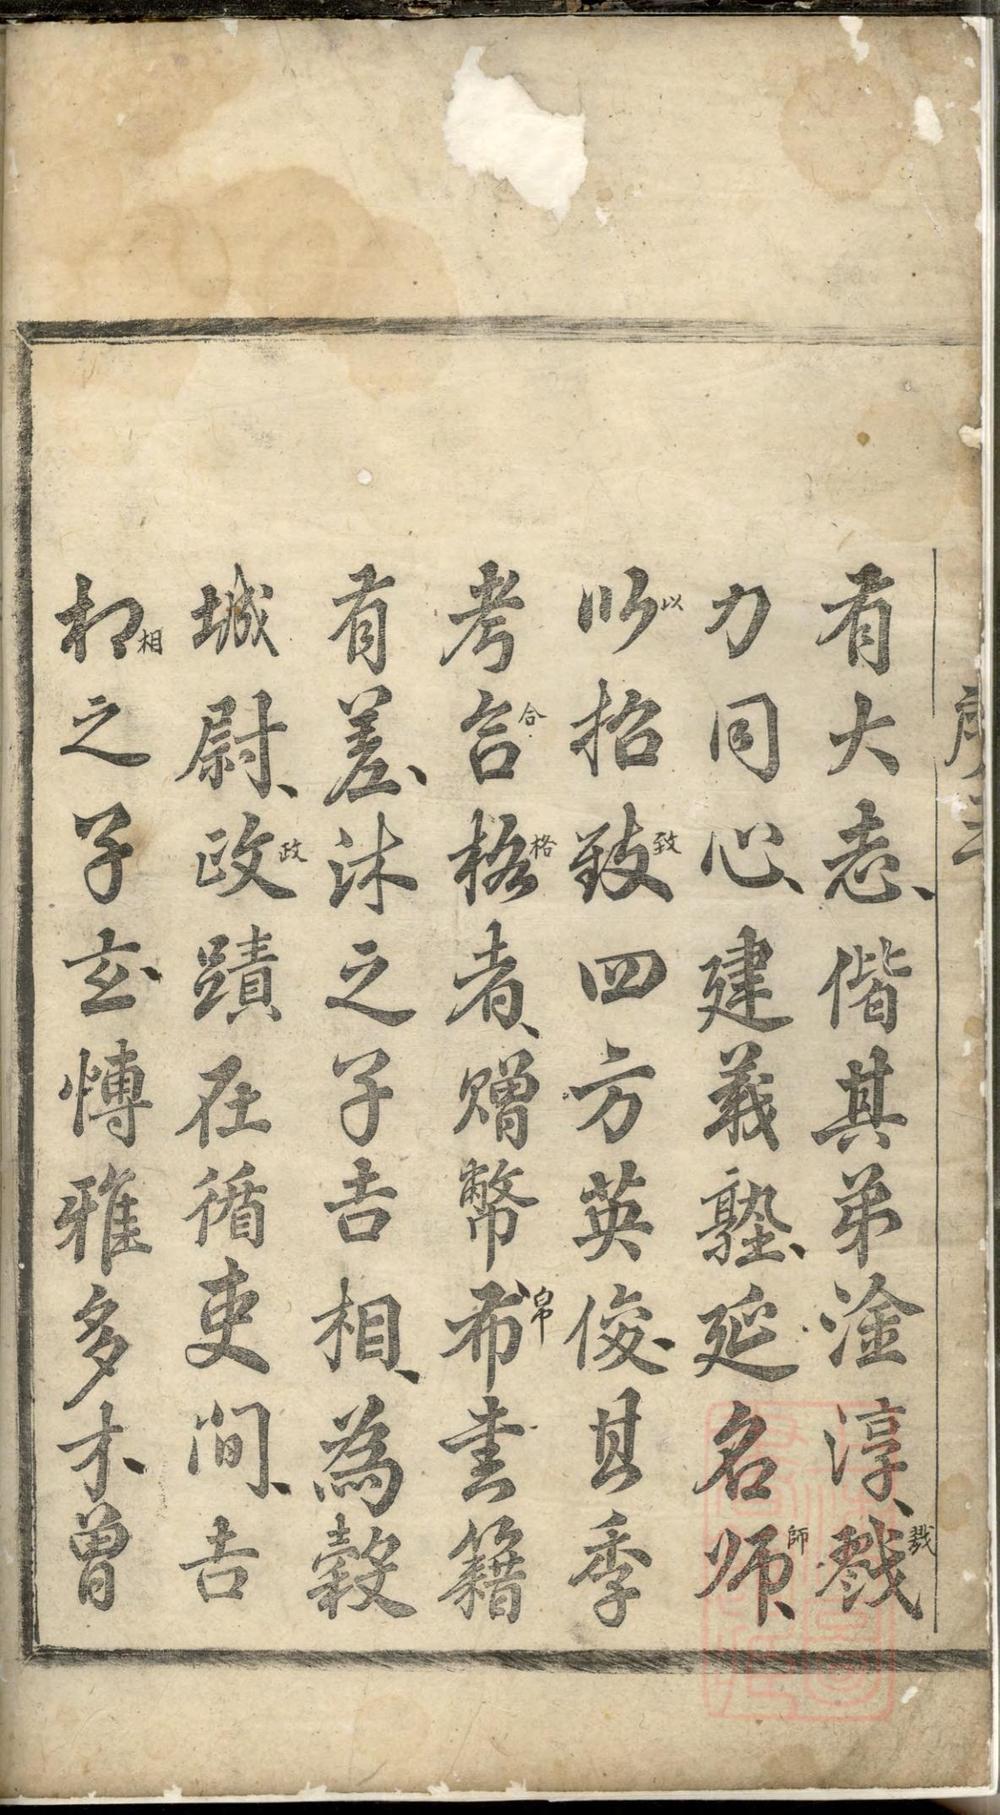 有大志、偕其弟淦淳、戮戮
力同心、建義塾、延名师、師
以以招致致四方英俊、其季
考合合格格者、赠幣布帛書籍
有差、沐之子吉相、為穀
城尉、政政蹟在循吏间、吉
相相之子玄愽雅多才、曾
序